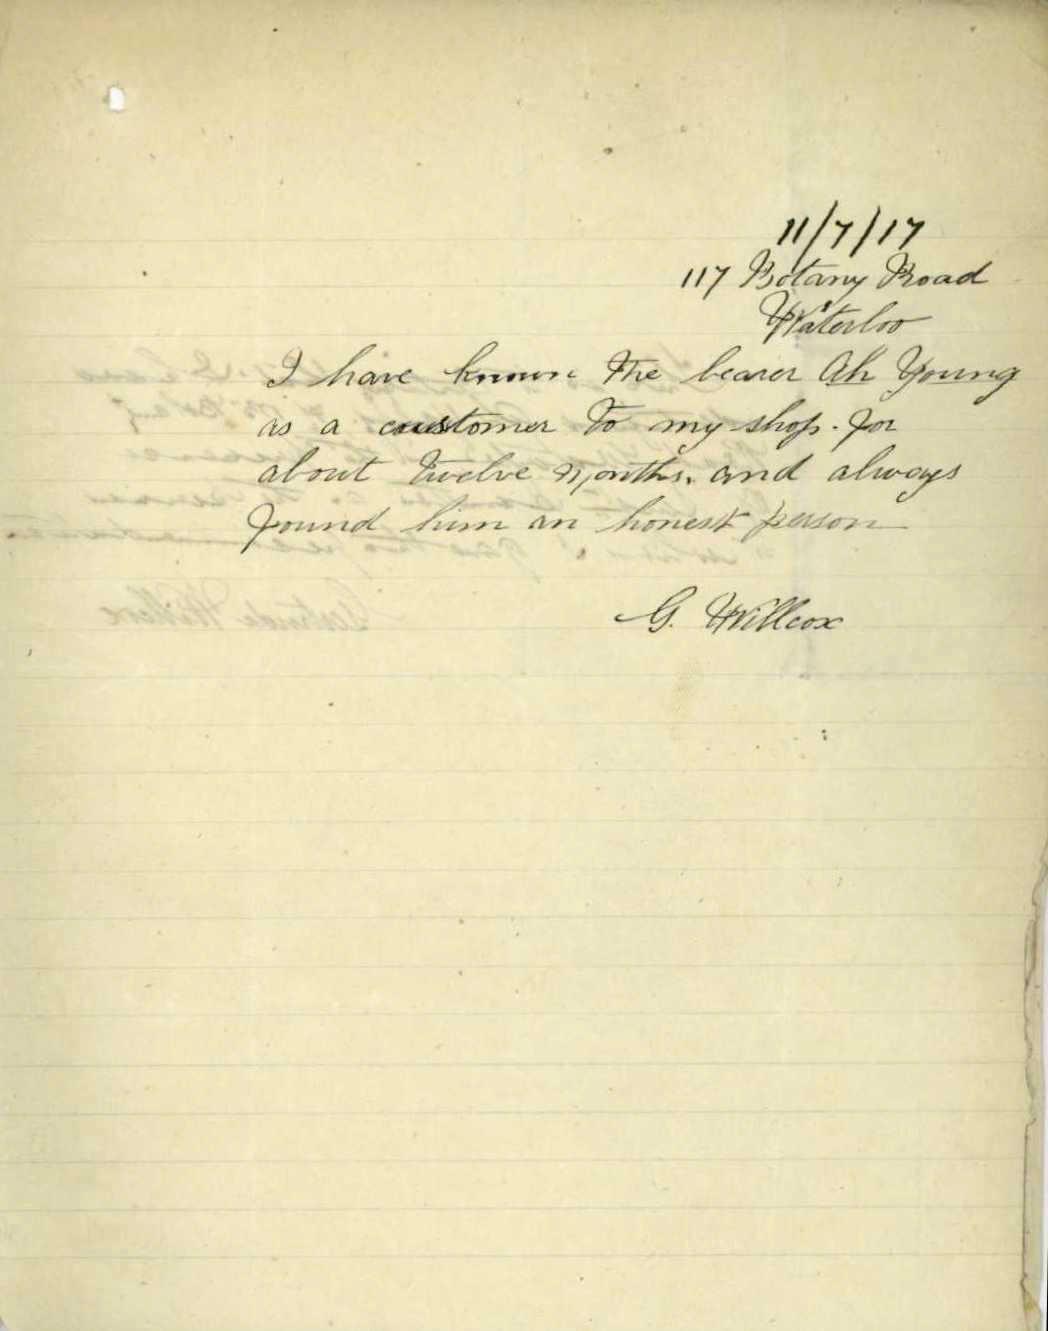 11/7/17
117 Botany Road
Waterloo
I have known the bearer Ah Young
as a customer to my shop. for
about twelve months. and always
found him an honest person
G. Willcox